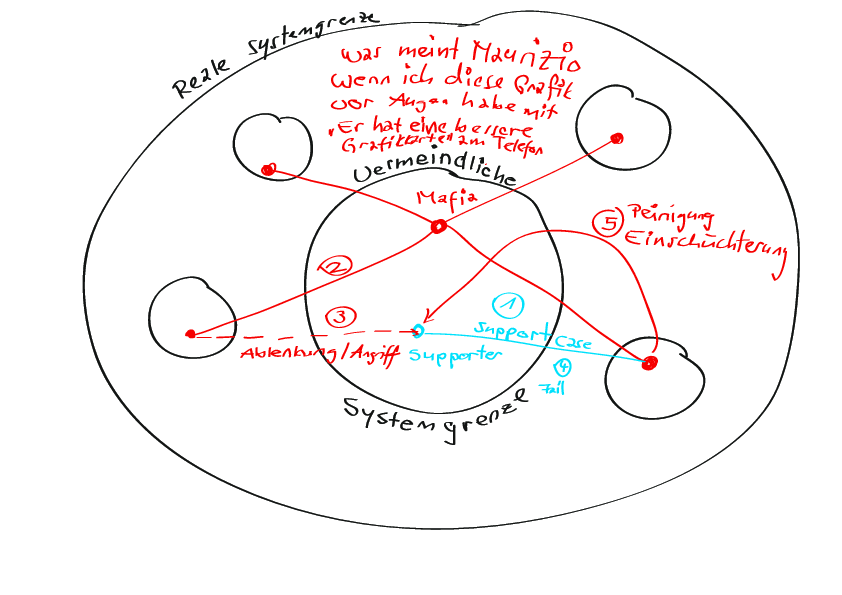 Reale Systemgrenze
Was meint Maurizio
wenn ich diese Grafik
vor Augen habe mit
"Er hat eine bessere
Grafikkarte" am Telefon
Vermeindliche
Mafia
5 Peinigung
Einschüchterung
2
1
3
Support Case
Ablenkung/Angriff
Supporter
4
Fail
Systemgrenze